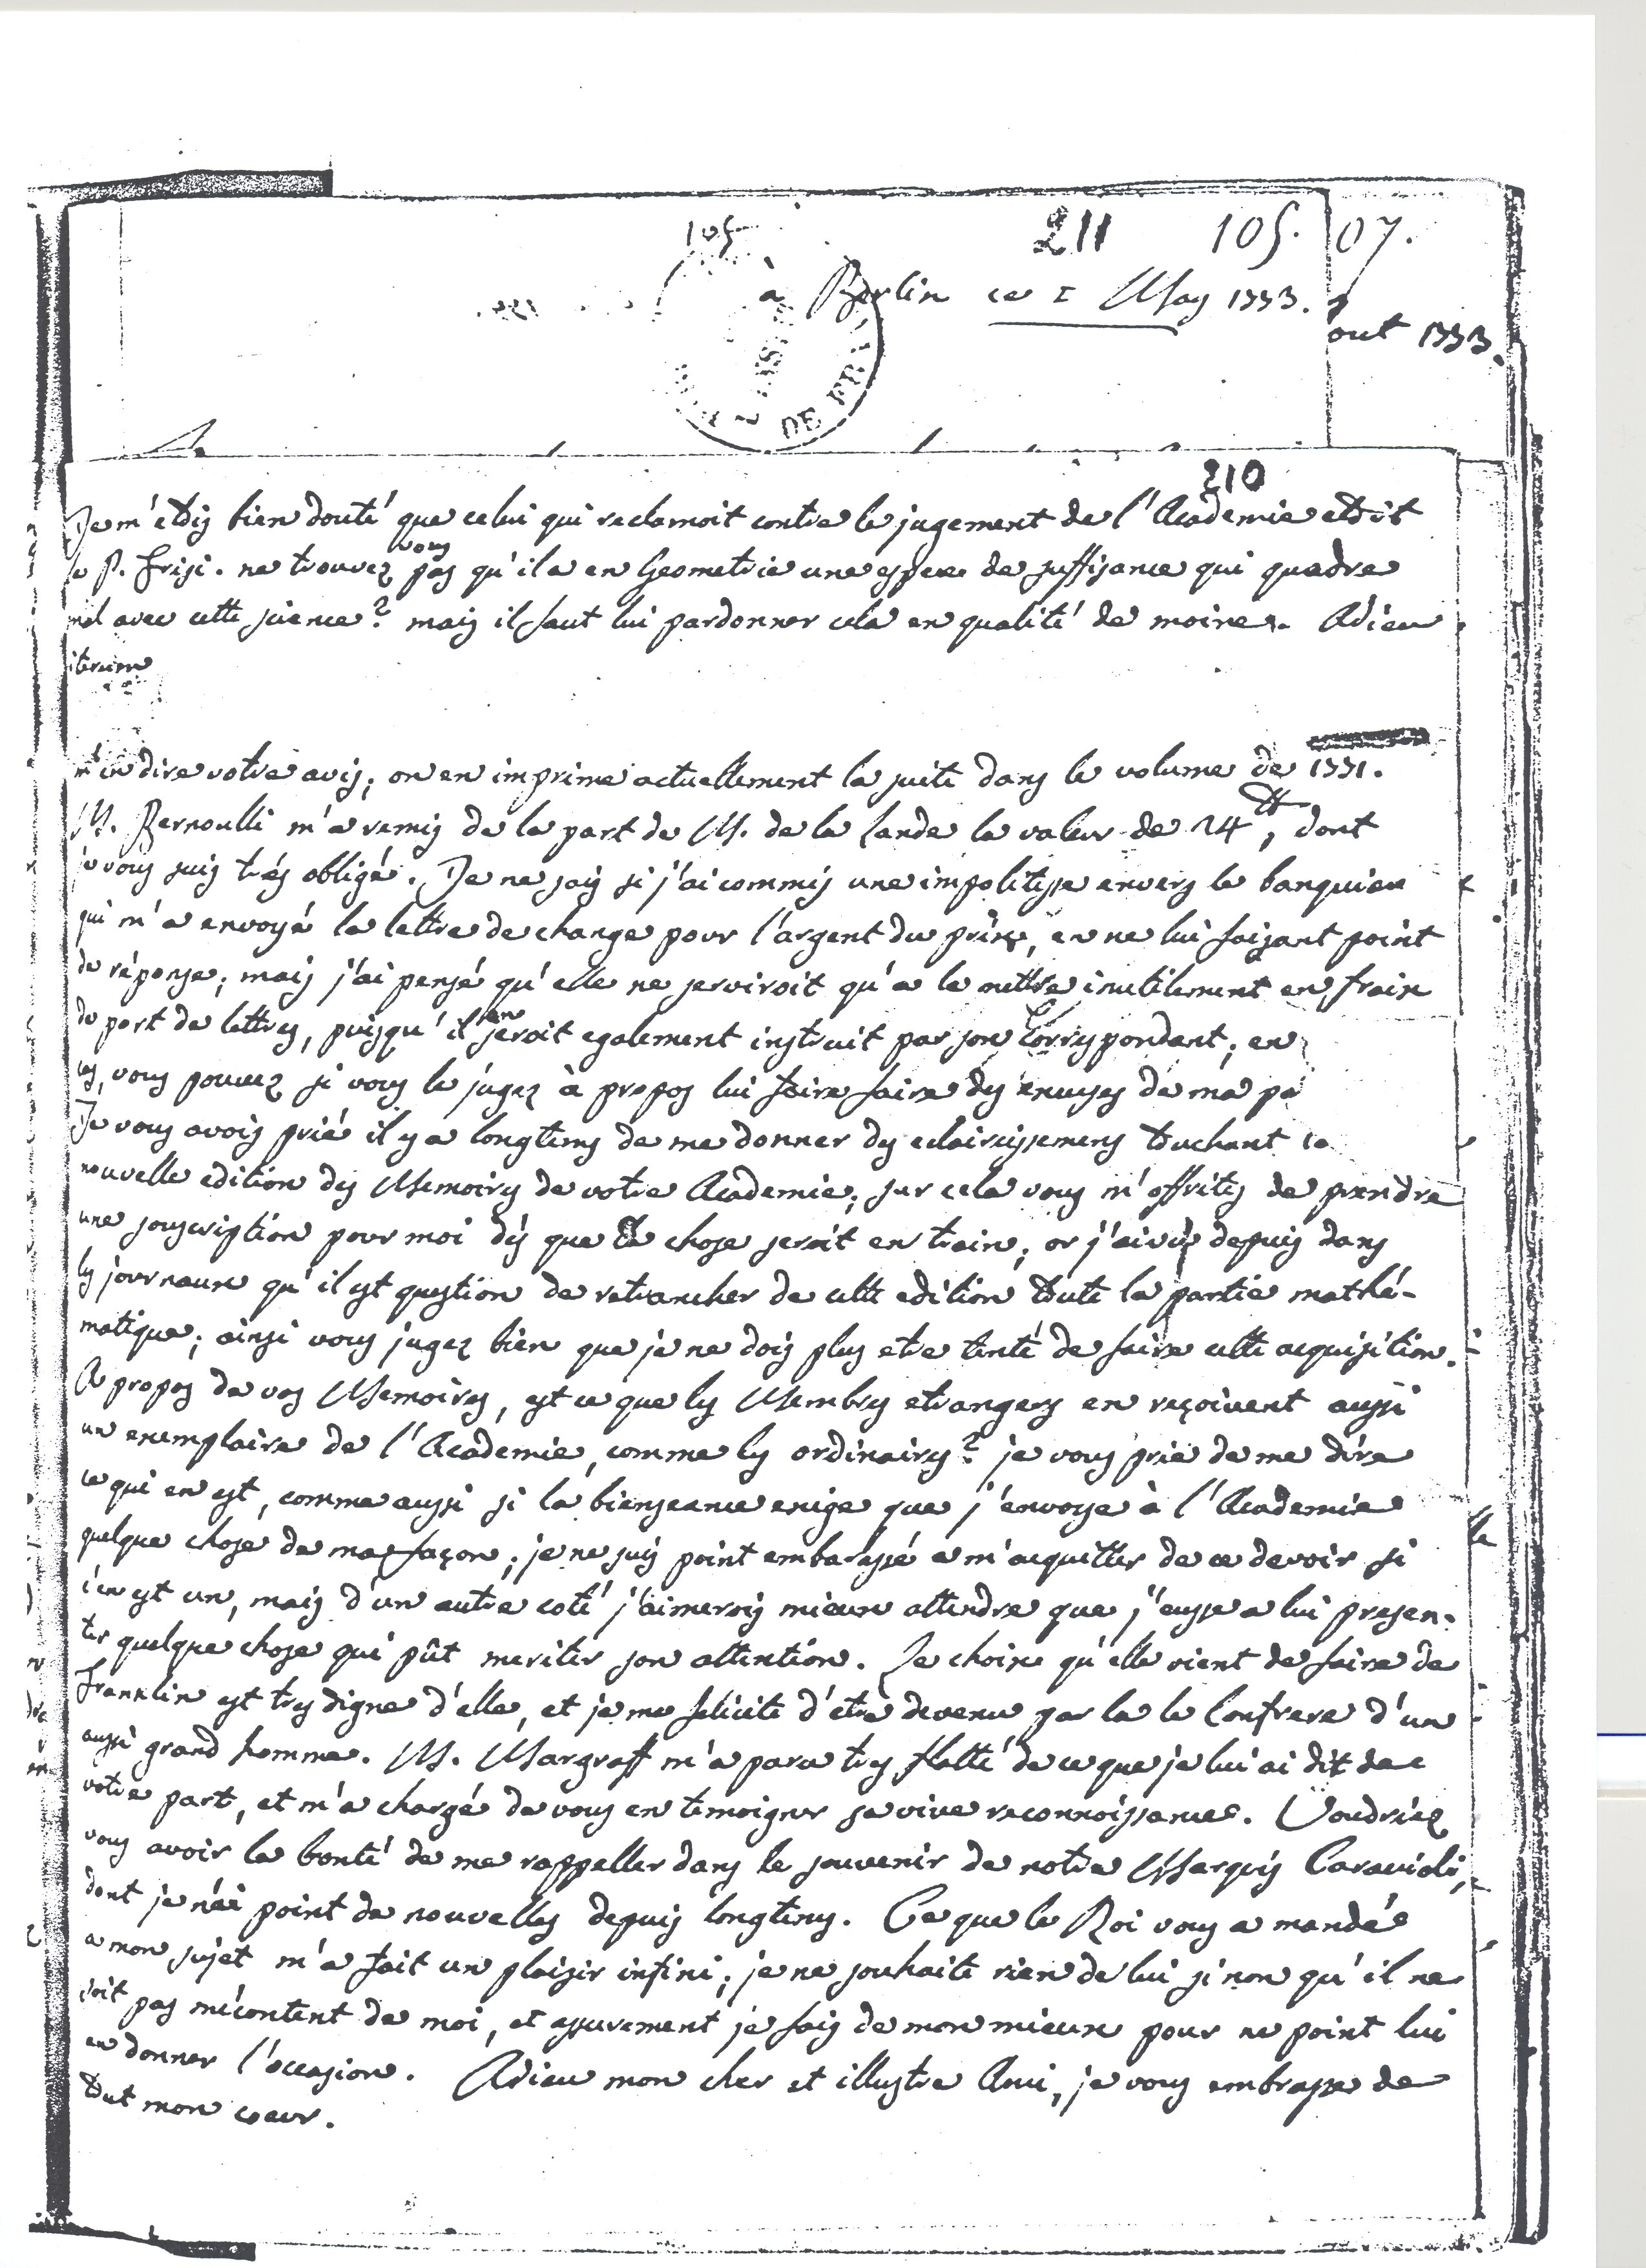 105
211 105. 07.
à Berlin ce 1 May 1773.
out 1773.
DE FR
210
Je m'étois bien douté que celui qui reclamoit contre le jugement de l'Academie etoit
le P. Frisi. ne trouvez vous pas qu'il a en Geometrie une espece de suffisance qui quadre
mal avec cette science? mais il faut lui pardonner cela en qualité de moine. Adieu
iterum
m'en dire votre avis; on en imprime actuellement la suite dans le volume de 1771.
M. Bernoulli m'a remis de la part de M. de la Lande la valeur de 24 ₶, dont
je vous suis trés obligé. Je ne sais si j'ai commis une impolitesse envers le banquier
qui m'a envoyé la lettre de change pour l'argent du prix, en ne lui faisant point
de réponse; mais j'ai pensé qu'elle ne serviroit qu'a le mettre inutilement en fraix
de port de lettres, puisqu'il en seroit egalement instruit par son Correspondant; en
cas, vous pouvez si vous le jugez à propos lui faire faire des excuses de ma pa
Je vous avois prié il y a longtems de me donner des eclaircissemens touchant la
nouvelle edition des Memoires de votre Academie; sur cela vous m'offrites de prendre
une souscription pour moi dès que la chose seroit en train; or j'ai vû depuis dans
les journaux qu'il est question de retrancher de cette edition toute la partie mathé-
matique; ainsi vous jugez bien que je ne dois plus etre tenté de faire cette acquisition.
A propos de vos Memoires, est ce que les Membres etrangers en reçoivent aussi
un exemplaire de l'Academie, comme les ordinaires? je vous prie de me dire
ce qui en est, comme aussi si la bienseance exige que j'envoye à l'Academie
quelque chose de ma façon; je ne suis point embarassé a m'acquitter de ce devoir si
c'en est un, mais d'un autre coté j'aimerois mieux attendre que j'eusse a lui presen-
ter quelque chose qui pût meriter son attention. Le choix qu'elle vient de faire de
Franklin est tres digne d'elle, et je me felicite d'etre devenu par la le Confrere d'un
aussi grand homme. M. Margraff m'a paru tres flatté de ce que je lui ai dit de
votre part, et m'a chargé de vous en temoigner sa vive reconnoissance. Voudriez
vous avoir la bonté de me rappeller dans le souvenir de notre Marquis Caraccioli,
dont je n'ai point de nouvelles depuis longtems. Ce que le Roi vous a mandé
a mon sujet m'a fait un plaisir infini; je ne souhaite rien de lui si non qu'il ne
soit pas mécontent de moi, et assurement je fais de mon mieux pour ne point lui
en donner l'occasion. Adieu mon cher et illustre Ami, je vous embrasse de
tout mon coeur.